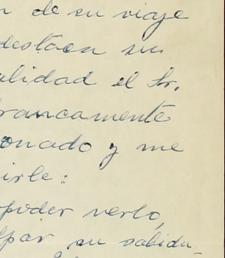 n de su viaje
destaca su
alidad el Sr.
francamente
onado y me
irle:
poder verlo,
par su sabidu-